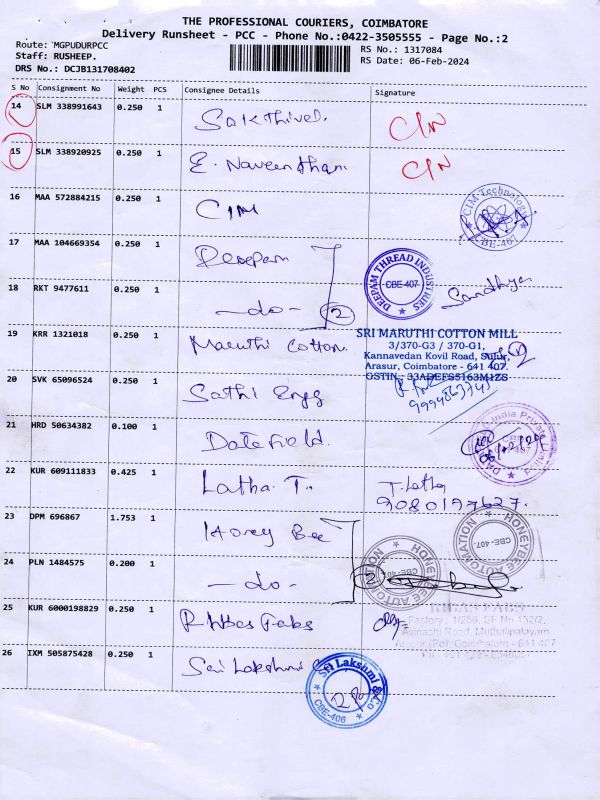 THE PROFESSIONAL COURIERS, COIMBATORE
Delivery Runsheet - PCC - Phone No.:0422-3505555 - Page No.:2
Route: MGPUDURPCC
Staff: RUSHEEP.
DRS No.: DCJB131708402
RS No.: 1317084
RS Date: 06-Feb-2024
S No Consignment No Weight PCS Consignee Details Signature
14 SLM 338991643 0.250 1 Sakthivel. C/N
15 SLM 338920925 0.250 1 E. Naveenthan. C/N
16 MAA 572884215 0.250 1 CIM
CIM-Technologies
CBE-407
17 MAA 104669354 0.250 1 Deepam
DEEPAM THREAD INDUSTRIES
CBE-407
18 RKT 9477611 0.250 1 -do- 2 Sandhya
19 KRR 1321018 0.250 1 Maruthi Cotton.
SRI MARUTHI COTTON MILL
3/370-G3 / 370-G1,
Kannavedan Kovil Road, Sulur,
Arasur, Coimbatore - 641 407.
GSTIN: 33ADEFS5163M1ZS
20 SVK 65096524 0.250 1 Sathi Engg
21 HRD 50634382 0.100 1 Datefield.
India Private
22 KUR 609111833 0.425 1 Latha T. T. Latha
9080197627.
23 DPM 696867 1.753 1 Honey Bee
HONEYBEE AUTOMATION
CBE-407.
24 PLN 1484575 0.200 1 -do- 2
HONEYBEE AUTOMATION
CBE-407.
25 KUR 6000198829 0.250 1 Rhbas Fabs
RIBAS FABS
Factory : 1/256, SF No 132/2,
Avinachi Road, Muthalipalayam
Arasur (Po), Coimbatore - 641 407
26 IXM 505875428 0.250 1 Sri Lakshmi
Sri Lakshmi
CBE-406